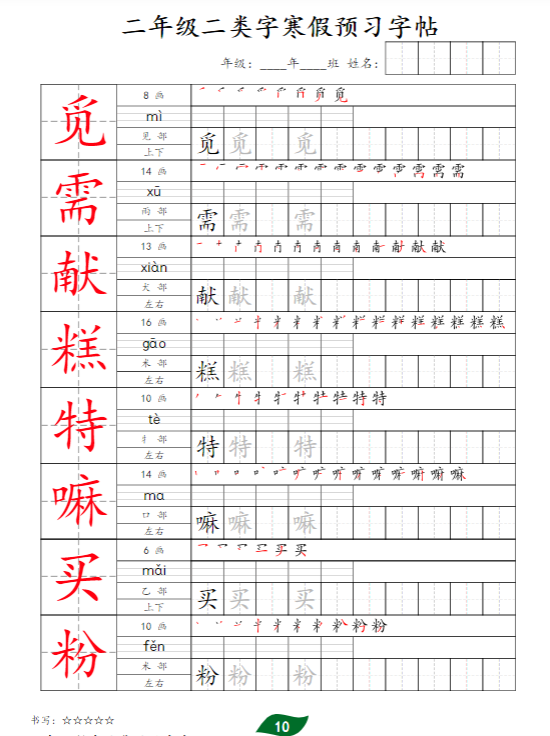 二年级二类字寒假预习字帖
年级：____年____班 姓名：
觅
8 画
mì
见 部
上下
觅 觅 觅
需
14 画
xū
雨 部
上下
需 需 需
献
13 画
xiàn
犬 部
左右
献 献 献
糕
16 画
gāo
米 部
左右
糕 糕 糕
特
10 画
tè
牜 部
左右
特 特 特
嘛
14 画
ma
口 部
左右
嘛 嘛 嘛
买
6 画
mǎi
乙 部
上下
买 买 买
粉
10 画
fěn
米 部
左右
粉 粉 粉
书写：☆☆☆☆☆
10